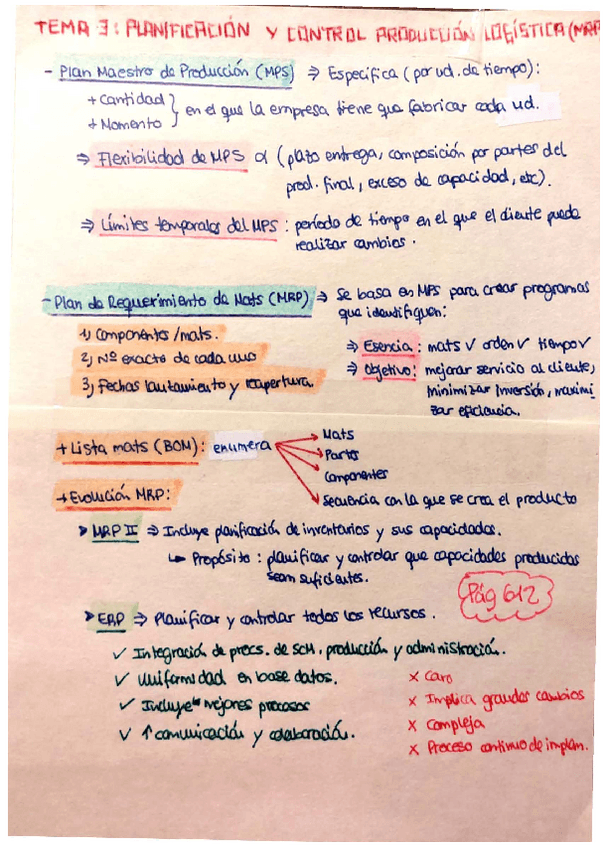 TEMA 3: PLANIFICACIÓN Y CONTROL PRODUCCIÓN LOGÍSTICA (MRP
- Plan Maestro de Producción (MPS) ⇒ Especifica (por ud. de tiempo):
+ Cantidad
+ Momento } en el que la empresa tiene que fabricar cada ud.
⇒ Flexibilidad de MPS α (plazo entrega, composición por partes del
prod. final, exceso de capacidad, etc).
⇒ Límites temporales del MPS: período de tiempo en el que el cliente puede
realizar cambios.
- Plan de Requerimiento de Mats (MRP) ⇒ Se basa en MPS para crear programas
que identifiquen:
1) Componentes/mats.
2) Nº exacto de cada uno
3) Fechas lanzamiento y reapertura.
⇒ Esencia: mats ✓ orden ✓ tiempo ✓
⇒ Objetivo: mejorar servicio al cliente,
minimizar inversión, maximi
zar eficiencia.
+ Lista mats (BOM): enumera
→ Mats
→ Partes
→ Componentes
→ Secuencia con la que se crea el producto
+ Evolución MRP:
➤ MRP II ⇒ Incluye planificación de inventarios y sus capacidades.
↳ Propósito: planificar y controlar que capacidades producidas
sean suficientes.
Pág 612
➤ ERP ⇒ Planificar y controlar todos los recursos.
✓ Integración de procs. de SCM, producción y administración.
✓ Uniformidad en base datos.
✓ Incluye mejores procesos
✓ ↑ comunicación y colaboración.
× Caro
× Implica grandes cambios
× Compleja
× Proceso continuo de implan.